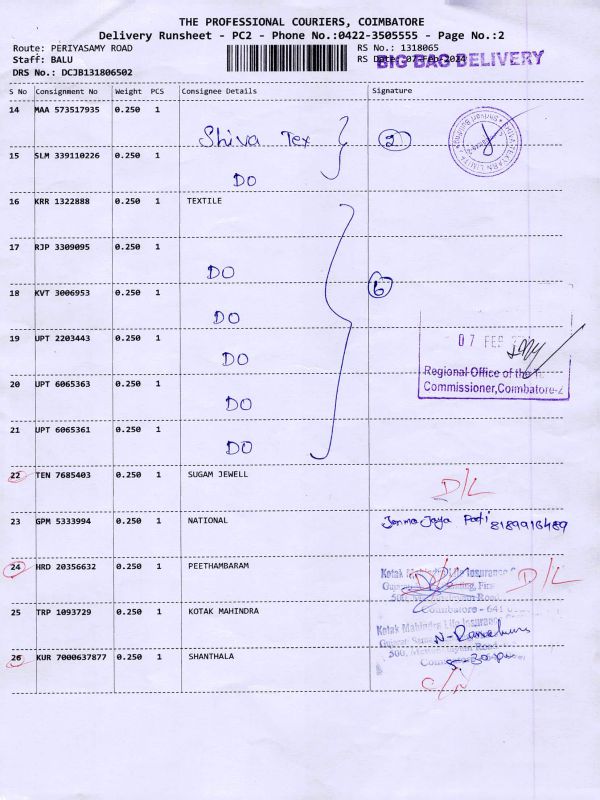 THE PROFESSIONAL COURIERS, COIMBATORE
Delivery Runsheet - PC2 - Phone No.:0422-3505555 - Page No.:2
Route: PERIYASAMY ROAD RS No.: 1318065
Staff: BALU RS Date: 07-Feb-2024
BIG BAG DELIVERY
DRS No.: DCJB131806502
S No Consignment No Weight PCS Consignee Details Signature
14 MAA 573517935 0.250 1
Shiva Tex 2
15 SLM 339110226 0.250 1
DO
16 KRR 1322888 0.250 1 TEXTILE
17 RJP 3309095 0.250 1
DO
18 KVT 3006953 0.250 1 6
DO
19 UPT 2203443 0.250 1
07 FEB
DO
Regional Office of the
20 UPT 6065363 0.250 1
Commissioner, Coimbatore-2
DO
21 UPT 6065361 0.250 1
DO
22 TEN 7685403 0.250 1 SUGAM JEWELL
D/L
23 GPM 5333994 0.250 1 NATIONAL
8189916489
24 HRD 20356632 0.250 1 PEETHAMBARAM
Kotak Mahindra Life Insurance
D/L
Coimbatore - 641
25 TRP 1093729 0.250 1 KOTAK MAHINDRA
Kotak Mahindra Life Insurance
26 KUR 7000637877 0.250 1 SHANTHALA
C/N